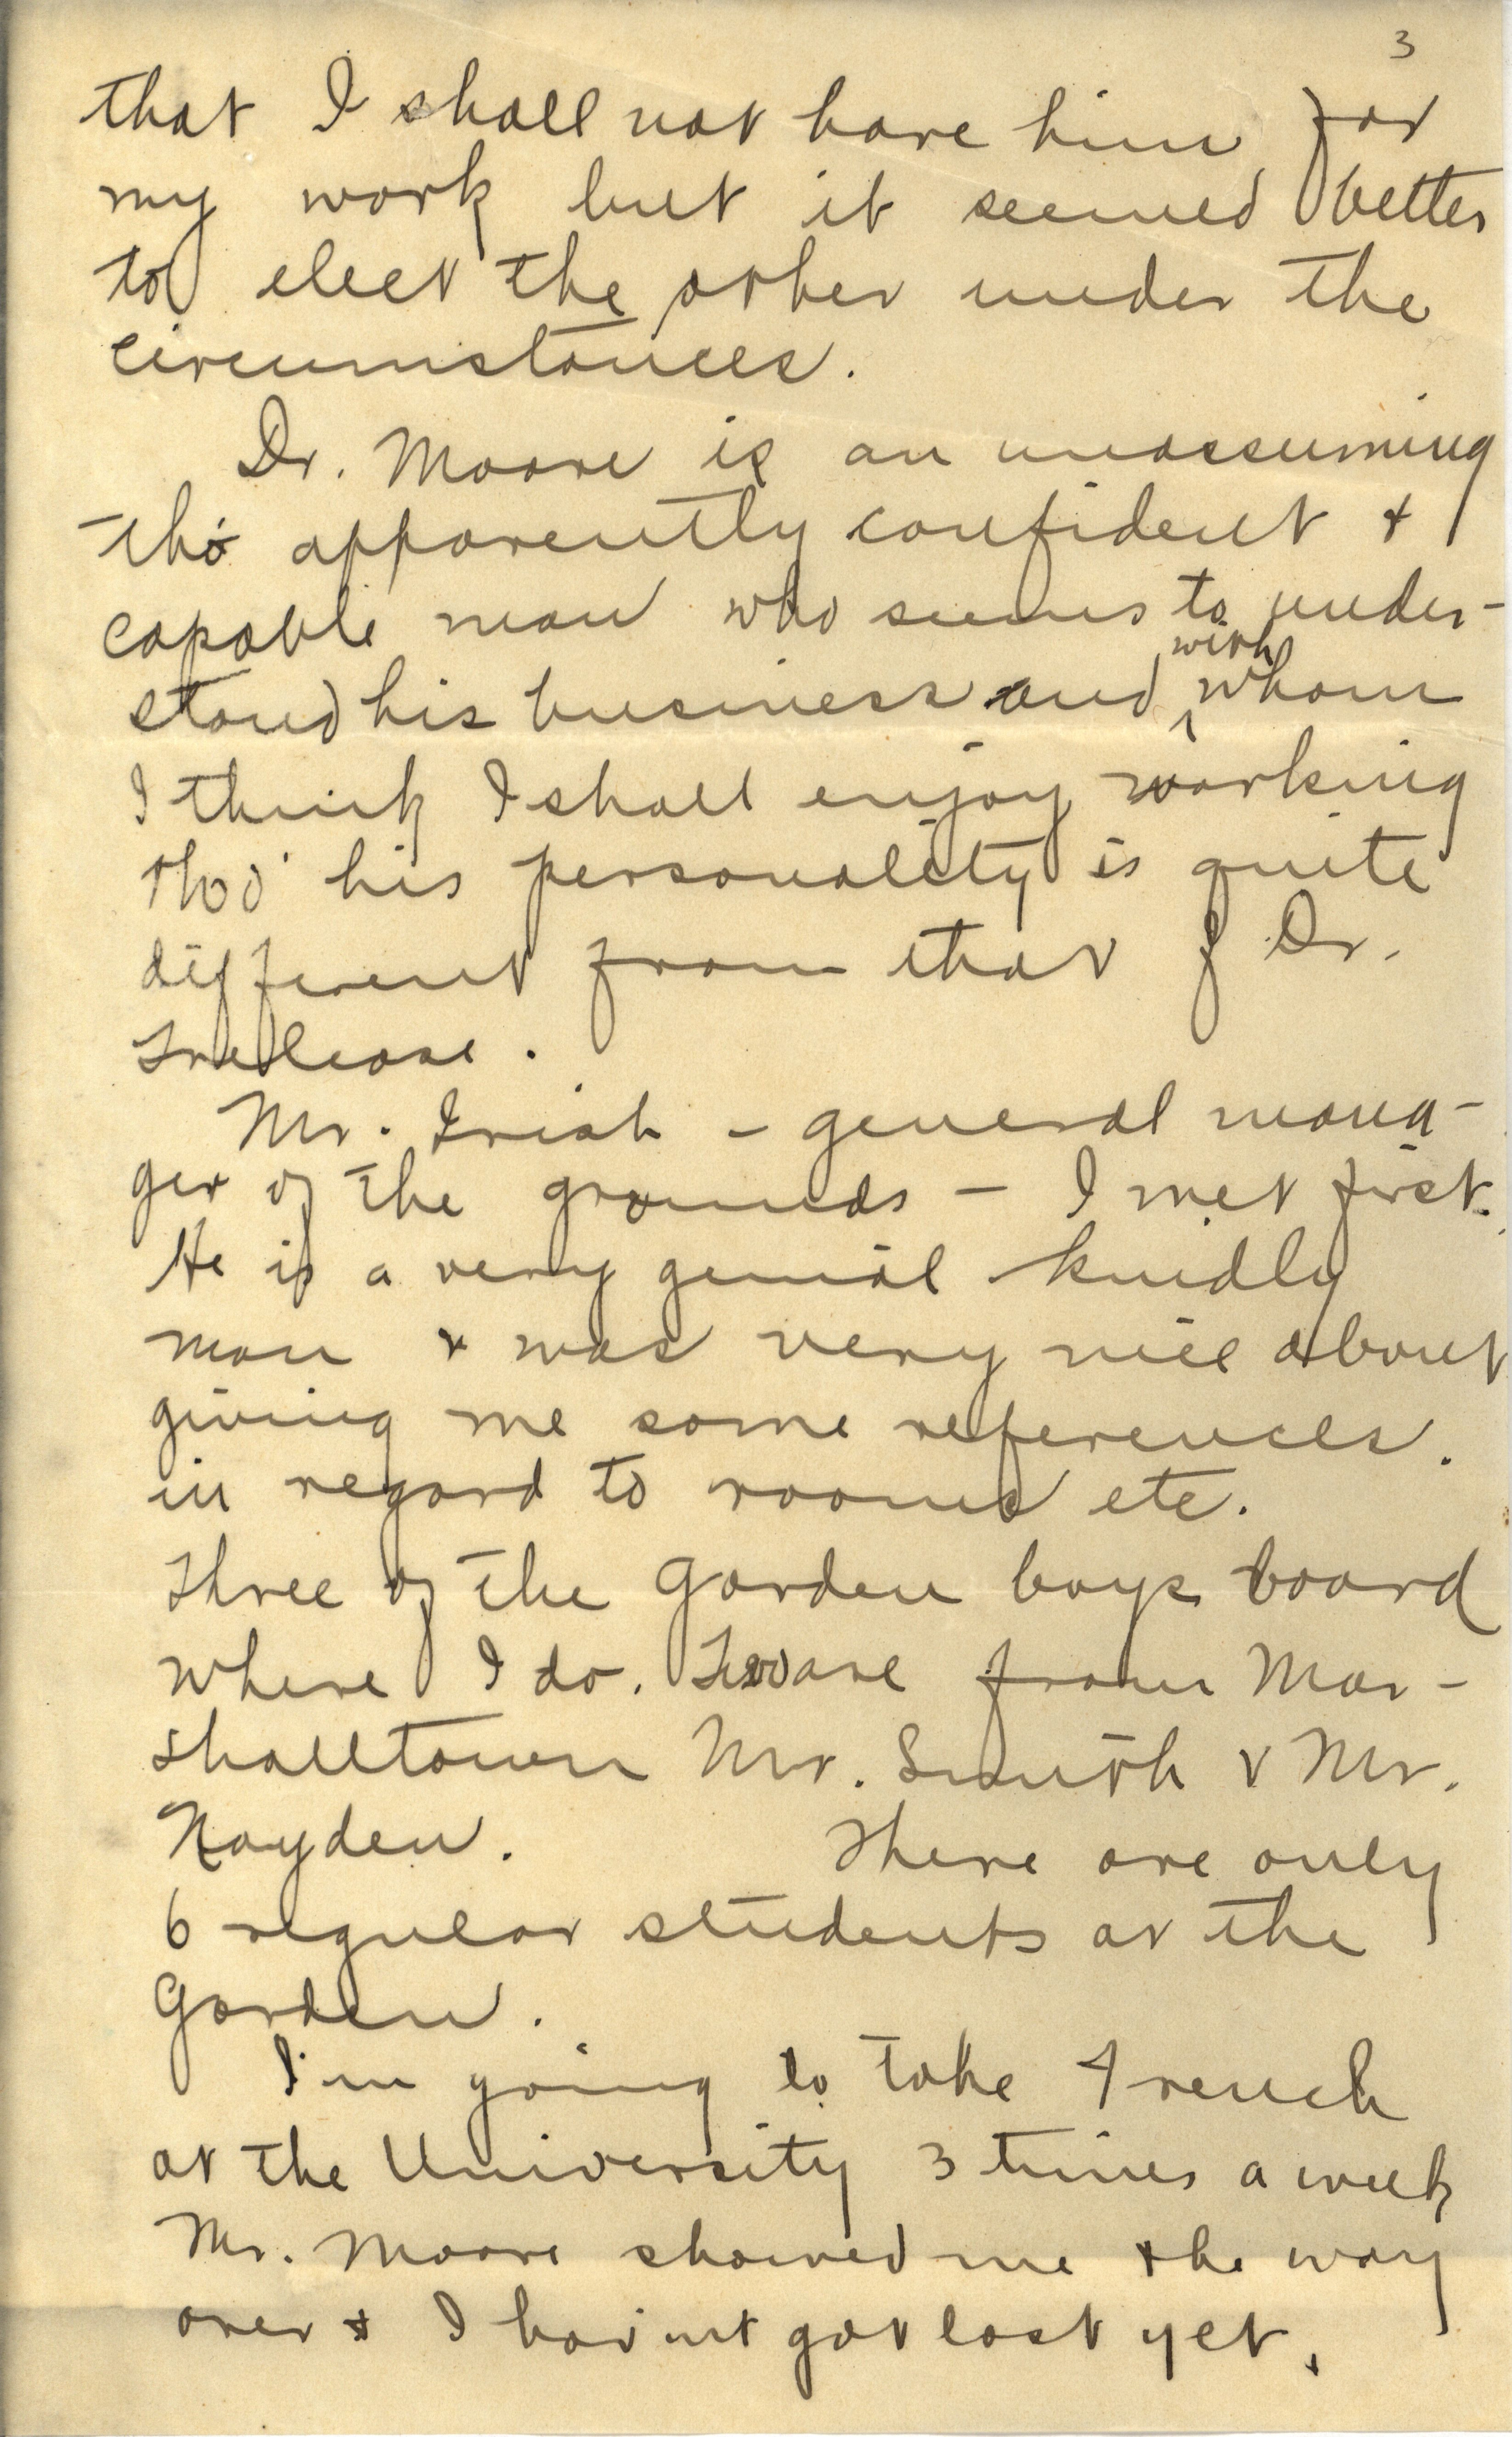 3
that I shall not have him for
my work but it seemed better
to elect the other under the
circumstances.
Dr. Moore is an unassuming
tho' apparently confident +
capable man who seems to under-
stand his business and ^with whom
I think I shall enjoy working
tho' his personality is quite
different from that of Dr.
Trelease.
Mr. Irish - general mana-
ger of the grounds - I met first.
He is a very genial kindly
man + was very nice about
giving me some references.
in regard to rooms etc.
Three of the Garden boys board
where I do. Two are from Mar-
shalltown Mr. Smith + Mr.
Hayden. There are only
6 regular students at the
Garden.
I'm going to take French
at the University 3 times a week
Mr. Moore showed me the way
over + I hav'nt got lost yet.